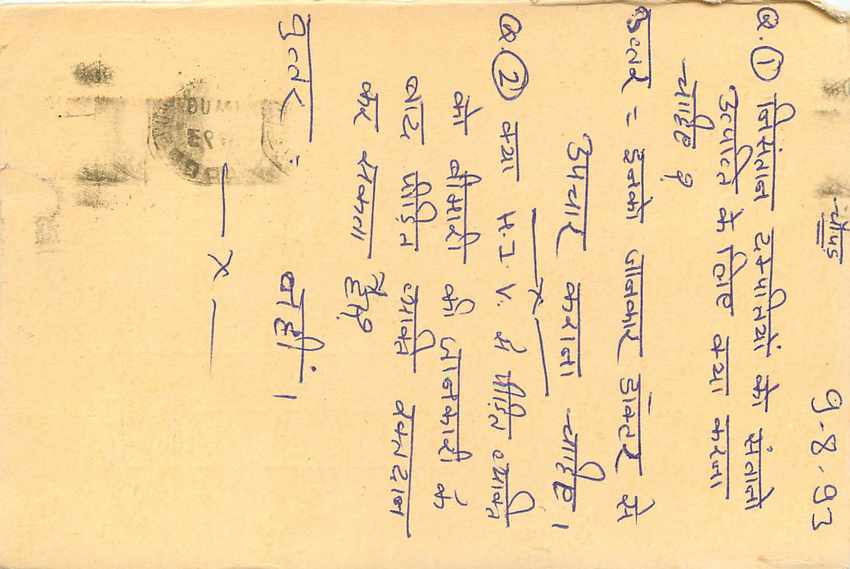 9-8-93
Q.① निसंतान दम्पत्तियों को संतानो
उत्पत्ति के लिए क्या करना
चाहिए ?
उत्तर = इनको जानकार डॉक्टर से
उपचार कराना चाहिए ।
— x —
Q.② क्या H.I.V. से पीड़ित व्यक्ति
को बीमारी की जानकारी के
बाद पीड़ित व्यक्ति रक्तदान
कर सकता है ?
उत्तर : नहीं ।
— x —